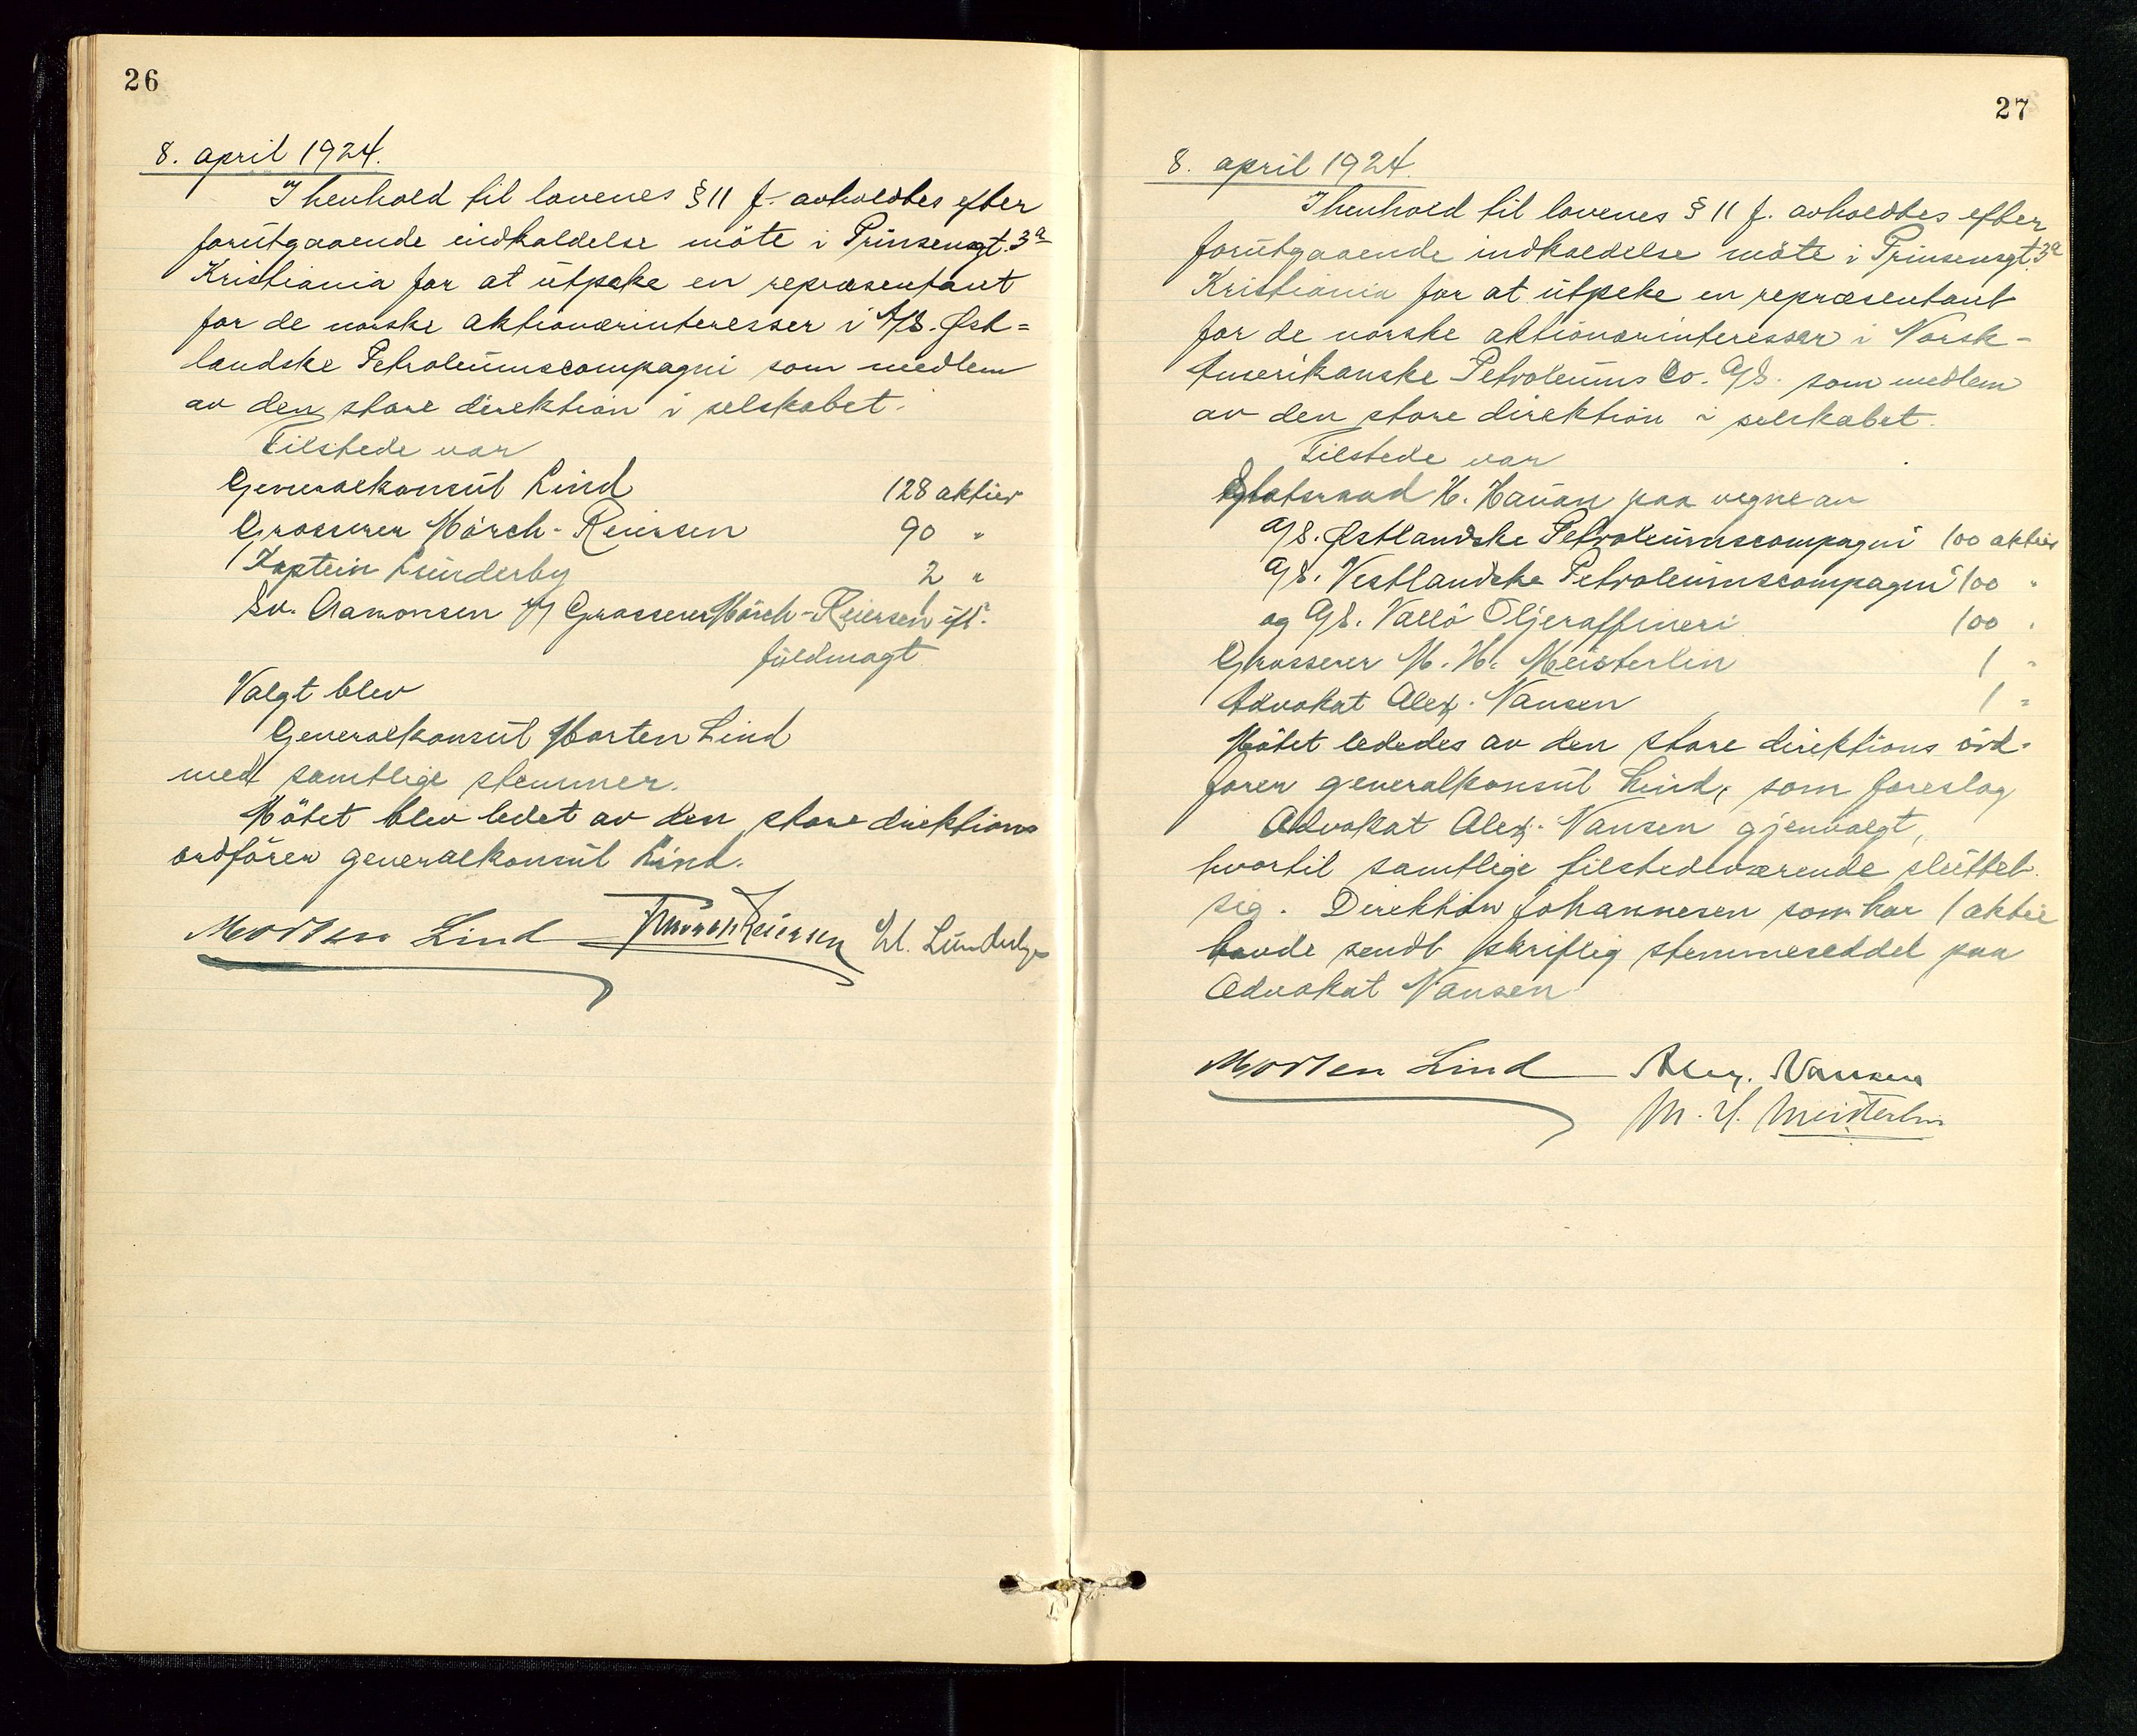 26
8. april 1924.
I henhold til lovenes § 11 f. avholdtes efter
forutgaaende indkaldelse möte i Prinsensgt. 3a
Kristiania for at utpeke en repræsentant
for de norske aktionærinteresser i A/S. Øst=
landske Petroleumscompagni som medlem
av den store direktion i selskabet.
Tilstede var
Generalkonsul Lind 128 aktier
Grosserer Mörch-Reiersen 90 "
Kaptein Lunderby 2 "
Sv. Aamonsen if Grosserer Mörch-Reiersen ifl.
fuldmagt
Valgt blev
Generalkonsul Morten Lind
med samtlige stemmer.
Mötet blev ledet av den store direktions
ordförer generalkonsul Lind.
Morten Lind Mörch Reiersen Lunderby
27
8. april 1924.
I henhold til lovenes § 11 f. avholdtes efter
forutgaaende indkaldelse möte i Prinsensgt. 3a
Kristiania for at utpeke en repræsentant
for de norske aktionærinteresser i Norsk-
Amerikanske Petroleums Co. A/S. som medlem
av den store direktion i selskabet.
Tilstede var
Statsraad K. Hauan paa vegne av
A/S. Østlandske Petroleumscompagni 100 aktier
A/S. Vestlandske Petroleumscompagni 100 "
og A/S. Vallö Oljeraffineri 100 "
Grosserer M. H. Meisterlin 1 "
Advokat Alex. Nansen 1 "
Mötet lededes av den store direktions ord-
förer generalkonsul Lind, som foreslog
Advokat Alex. Nansen gjenvalgt,
hvortil samtlige tilstedeværende sluttet
sig. Direktör Johannesen som har 1 aktie
havde sendt skriftlig stemmeseddel paa
Advokat Nansen
Morten Lind Alex. Nansen
M. H. Meisterlin